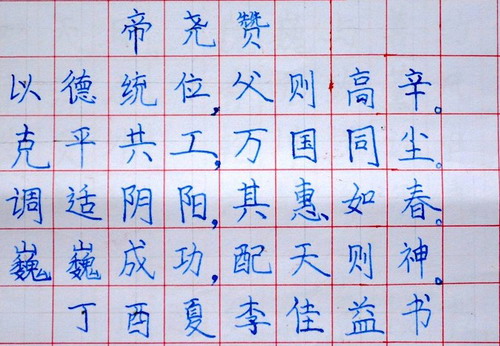 帝尧赞
以德统位,父则高辛。
克平共工,万国同尘。
调适阴阳,其惠如春。
巍巍成功,配天则神。
丁酉夏李佳益书